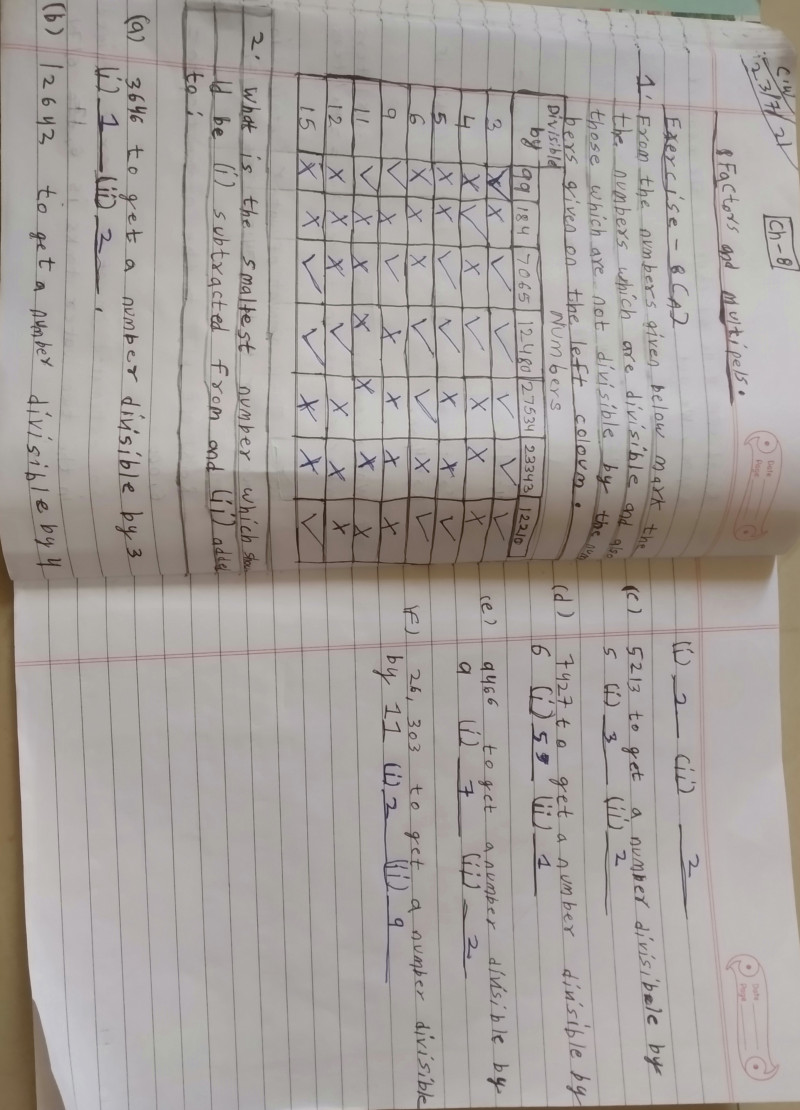 C.W
23/7/21
Ch-8
Factors and multipels.
Exercise - 8(A)
1. From the numbers given below mark the
the numbers which are divisible and also
those which are not divisible by the num
bers given on the left colovm.
Divisible by Numbers
99 184 7065 12480 27534 23343 12210
3 X ✓ ✓ ✓ ✓
4 X ✓ X ✓ X X X
5 X X ✓ ✓ X X ✓
6 X X X ✓ ✓ X ✓
9 ✓ X ✓ X X X X
11 ✓ X X X X X X
12 X X X ✓ X X X
15 X X ✓ ✓ X X ✓
2. What is the smallest number which shou
ld be (i) subtracted from and (ii) added
to:
(a) 3646 to get a number divisible by 3
(i) 1 (ii) 2.
(b) 12643 to get a number divisible by 4
Date
Page
(i) 2 (ii) 2
(c) 5213 to get a number divisibele by
5 (i) 3 (ii) 2
(d) 7427 to get a number divisible by
6 (i) 5 (ii) 1
(e) 9466 to get a number divisible by
9 (i) 7 (ii) 2
(f) 26,303 to get a number divisible
by 11 (i) 2 (ii) 9
Date
Page